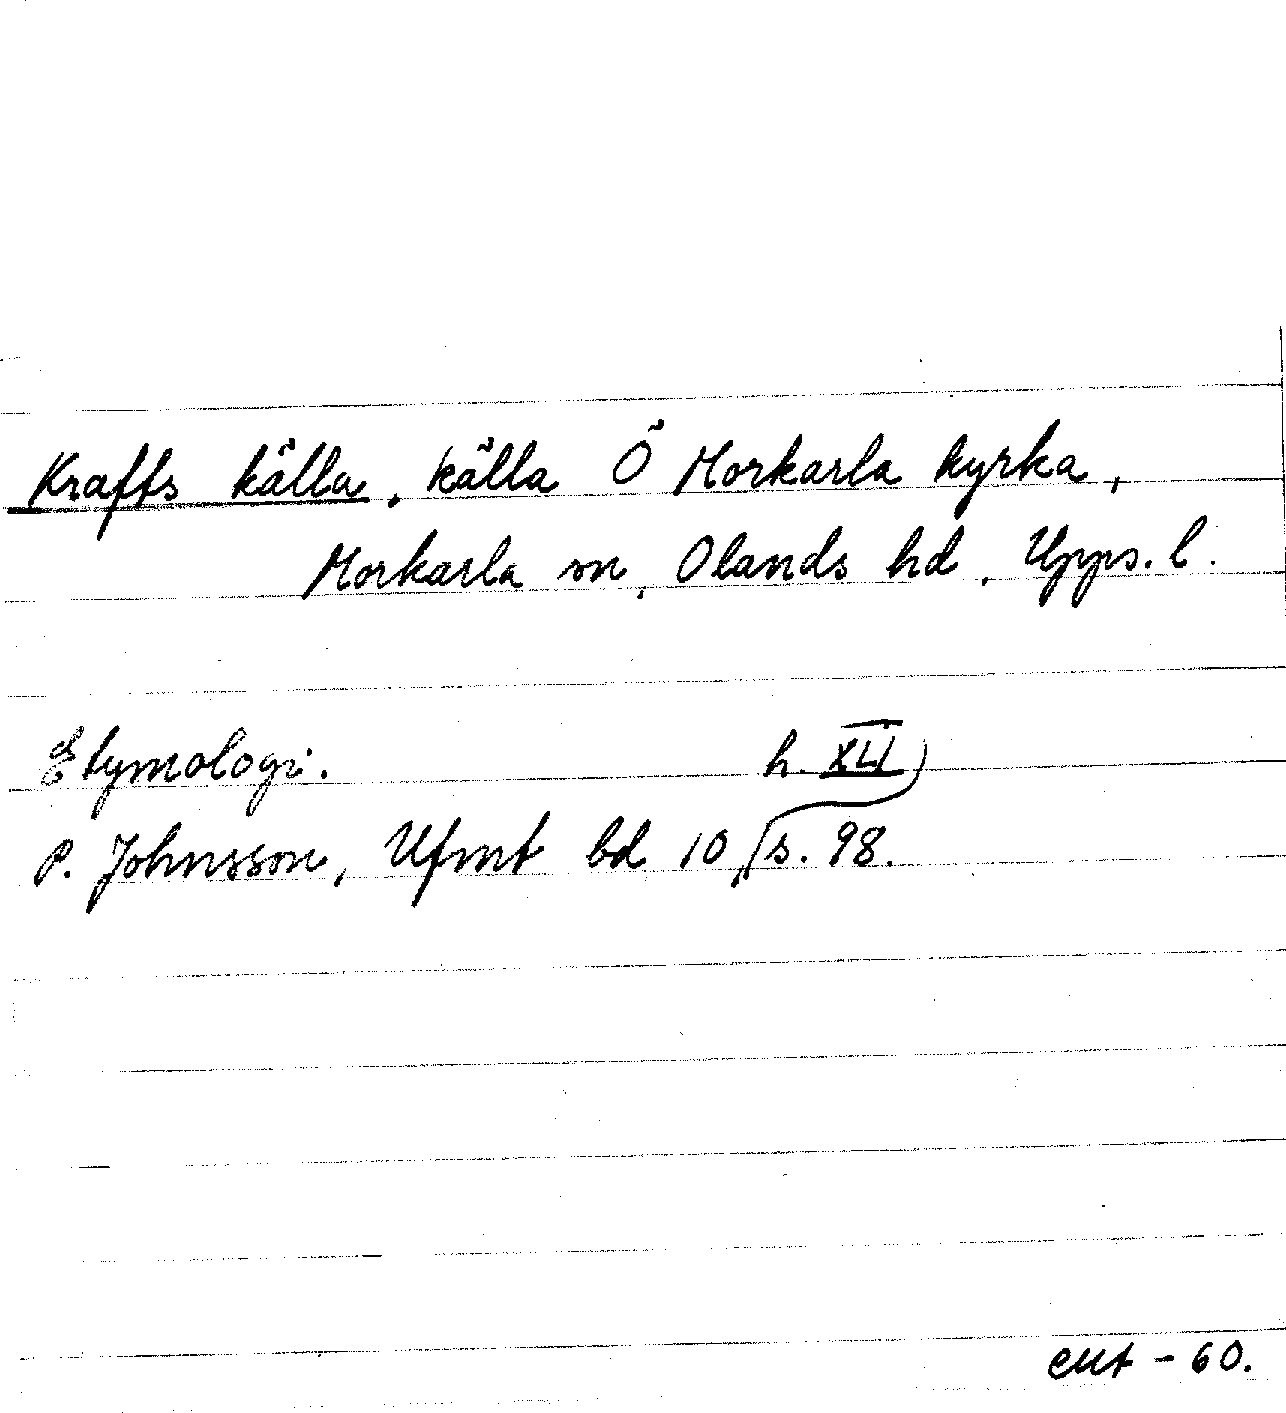 Kraffts källa, källa Ö Morkarla kyrka,
Morkarla sn, Olands hd, Upps. l.
Etymologi.
h. XLI
P. Johnsson, Ufmt bd 10 s. 98.
- 60.